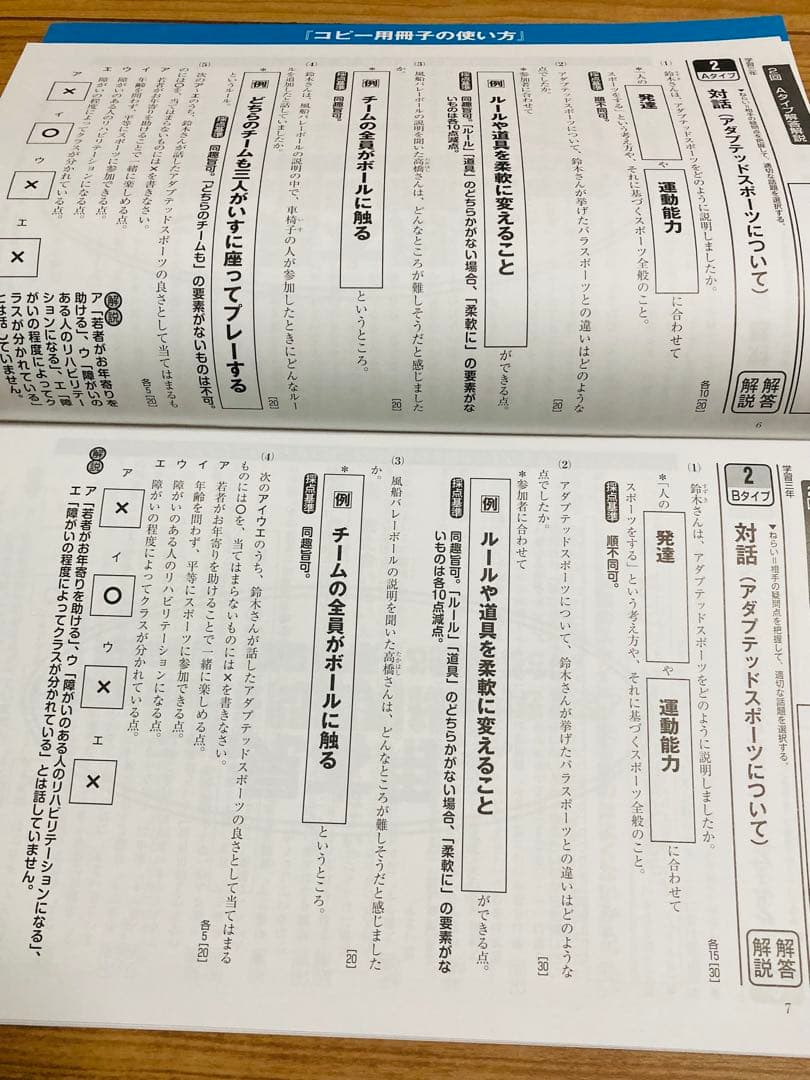 『コピー用冊子の使い方』
2回 Aタイプ解答解説
学習三年
2 Aタイプ
対話(アダプテッドスポーツについて)
解答解説
▼ねらい=相手の疑問点を把握して、適切な話題を選択する。
(1) 鈴木さんは、アダプテッドスポーツをどのように説明しましたか。
各10[20]
*「人の 発達 や 運動能力 に合わせて
スポーツをする」という考え方や、それに基づくスポーツ全般のこと。
採点基準 順不同可。
(2) アダプテッドスポーツについて、鈴木さんが挙げたパラスポーツとの違いはどのような
点でしたか。
[20]
*参加者に合わせて
例 ルールや道具を柔軟に変えること ができる点。
採点基準 同趣旨可。「ルール」「道具」のどちらかがない場合、「柔軟に」の要素がな
いものは各10点減点。
(3) 風船バレーボールの説明を聞いた高橋さんは、どんなところが難しそうだと感じました
か。
[20]
*
例 チームの全員がボールに触る というところ。
採点基準 同趣旨可。
(4) 鈴木さんは、風船バレーボールの説明の中で、車椅子の人が参加したときにどんなルー
ルを追加したと話していましたか。
[20]
*
例 どちらのチームも三人がいすに座ってプレーする
というルール。
採点基準 同趣旨可。「どちらのチームも」の要素がないものは不可。
(5) 次のアイウエのうち、鈴木さんが話したアダプテッドスポーツの良さとして当てはまるも
のには○を、当てはまらないものには×を書きなさい。
各5[20]
ア 若者がお年寄りを助けることで一緒に楽しめる点。
イ 年齢を問わず、平等にスポーツに参加できる点。
ウ 障がいのある人のリハビリテーションになる点。
エ 障がいの程度によってクラスが分かれている点。
ア × イ ○ ウ × エ ×
解説 ア「若者がお年寄りを
助ける」、ウ「障がいの
ある人のリハビリテー
ションになる」、エ「障
がいの程度によってク
ラスが分かれている」
とは話していません。
6
学習三年
2 Bタイプ
対話(アダプテッドスポーツについて)
解答解説
▼ねらい=相手の疑問点を把握して、適切な話題を選択する。
(1) 鈴木さんは、アダプテッドスポーツをどのように説明しましたか。
各15[30]
*「人の 発達 や 運動能力 に合わせて
スポーツをする」という考え方や、それに基づくスポーツ全般のこと。
採点基準 順不同可。
(2) アダプテッドスポーツについて、鈴木さんが挙げたパラスポーツとの違いはどのような
点でしたか。
[30]
*参加者に合わせて
例 ルールや道具を柔軟に変えること ができる点。
採点基準 同趣旨可。「ルール」「道具」のどちらかがない場合、「柔軟に」の要素がな
いものは各10点減点。
(3) 風船バレーボールの説明を聞いた高橋さんは、どんなところが難しそうだと感じました
か。
[20]
*
例 チームの全員がボールに触る というところ。
採点基準 同趣旨可。
(4) 次のアイウエのうち、鈴木さんが話したアダプテッドスポーツの良さとして当てはまる
ものには○を、当てはまらないものには×を書きなさい。
各5[20]
ア 若者がお年寄りを助けることで一緒に楽しめる点。
イ 年齢を問わず、平等にスポーツに参加できる点。
ウ 障がいのある人のリハビリテーションになる点。
エ 障がいの程度によってクラスが分かれている点。
ア × イ ○ ウ × エ ×
解説 ア「若者がお年寄りを助ける」、ウ「障がいのある人のリハビリテーションになる」、
エ「障がいの程度によってクラスが分かれている」とは話していません。
7